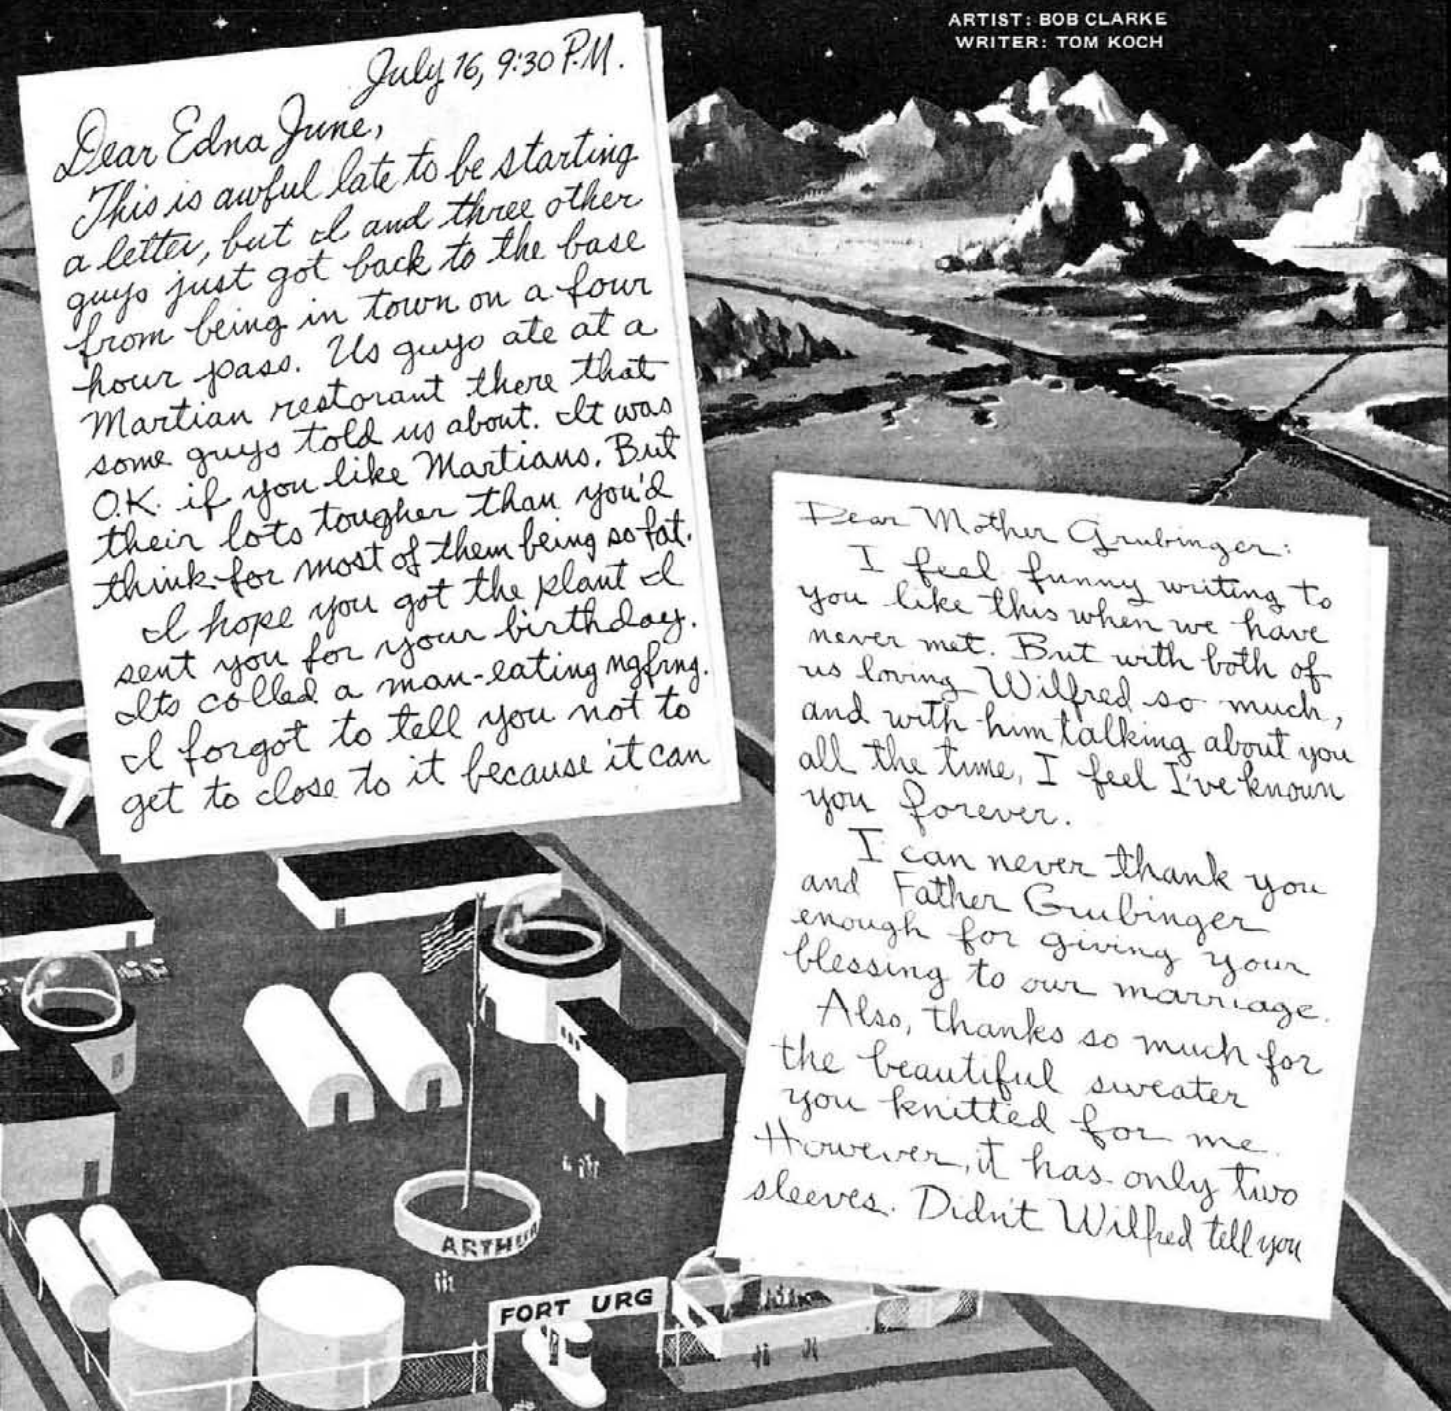 ARTIST: BOB CLARKE
WRITER: TOM KOCH
July 16, 9:30 P.M.
Dear Edna June,
This is awful late to be starting
a letter, but I and three other
guys just got back to the base
from being in town on a four
hour pass. Us guys ate at a
Martian restorant there that
some guys told us about. It was
O.K. if you like Martians. But
their lots tougher than you'd
think for most of them being so fat.
I hope you got the plant I
sent you for your birthday.
Its called a man-eating ngfrng.
I forgot to tell you not to
get to close to it because it can
Dear Mother Grubinger:
I feel funny writing to
you like this when we have
never met. But with both of
us loving Wilfred so much,
and with him talking about you
all the time, I feel I've known
you forever.
I can never thank you
and Father Grubinger
enough for giving your
blessing to our marriage.
Also, thanks so much for
the beautiful sweater
you knitted for me.
However, it has only two
sleeves. Didn't Wilfred tell you
ARTHU
FORT URG